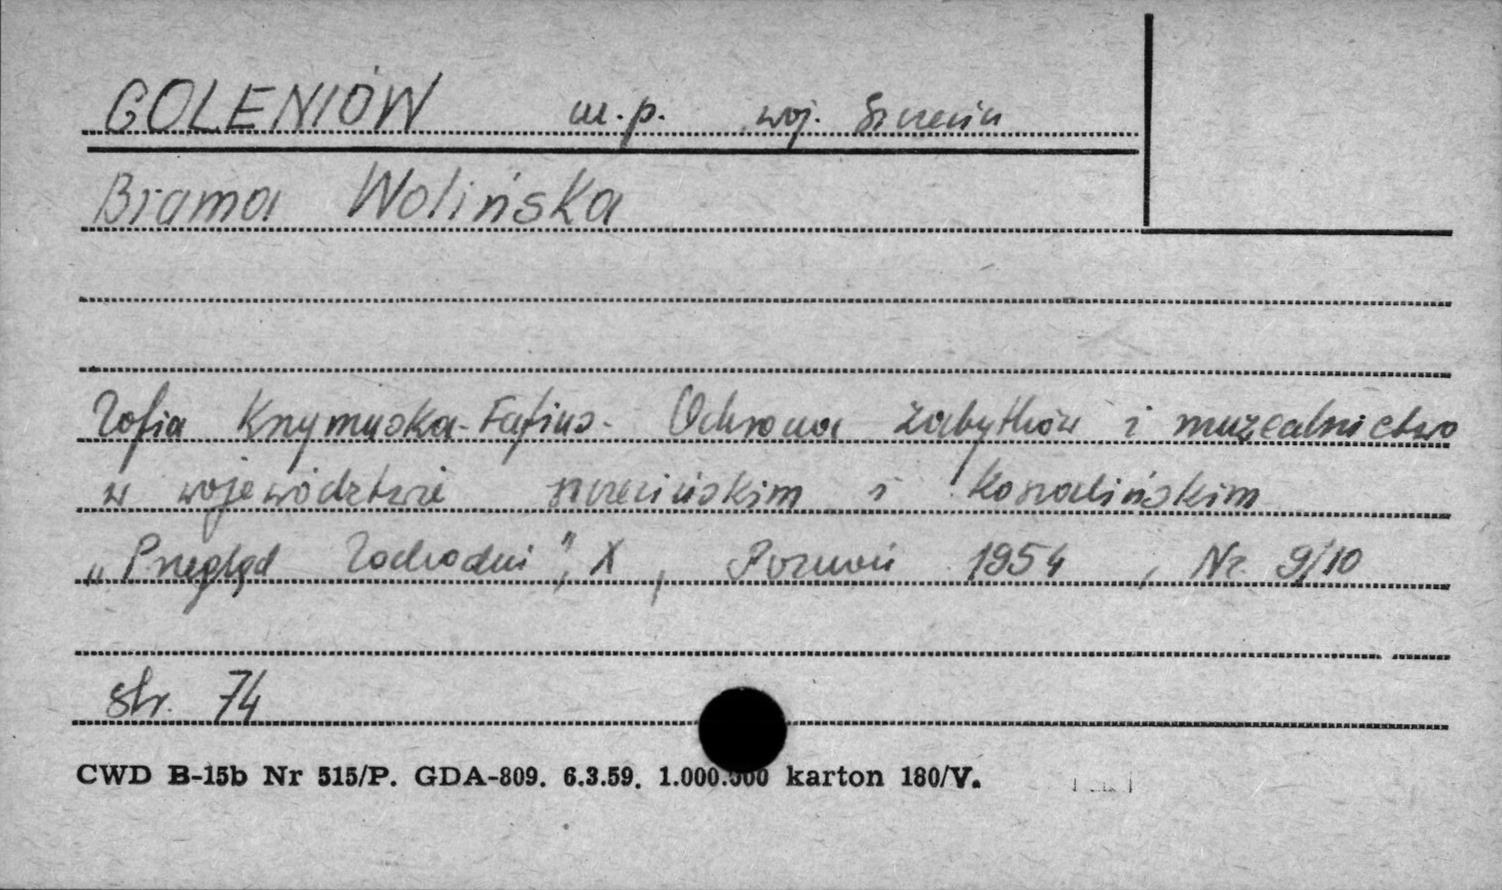 GOLENIÓW m.p. woj. Szczecin
Brama Wolińska
Zofia Krzymuska-Fafius. Ochrona zabytków i muzealnictwo
w województwie szczecińskim i koszalińskim
„Przegląd Zachodni", X, Poznań 1954, Nr 9/10
str. 74
CWD B-15b Nr 515/P. GDA-809. 6.3.59. 1.000.000 karton 180/V.